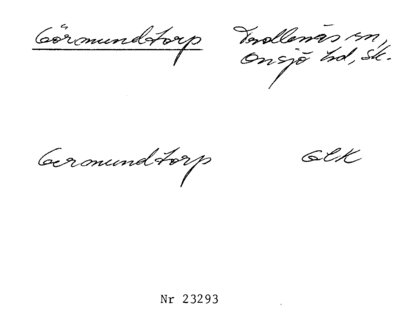 Görmundtorp
Trollenäs sn,
Onsjö hd, Sk.
Germundtorp
GEK
Nr 23293